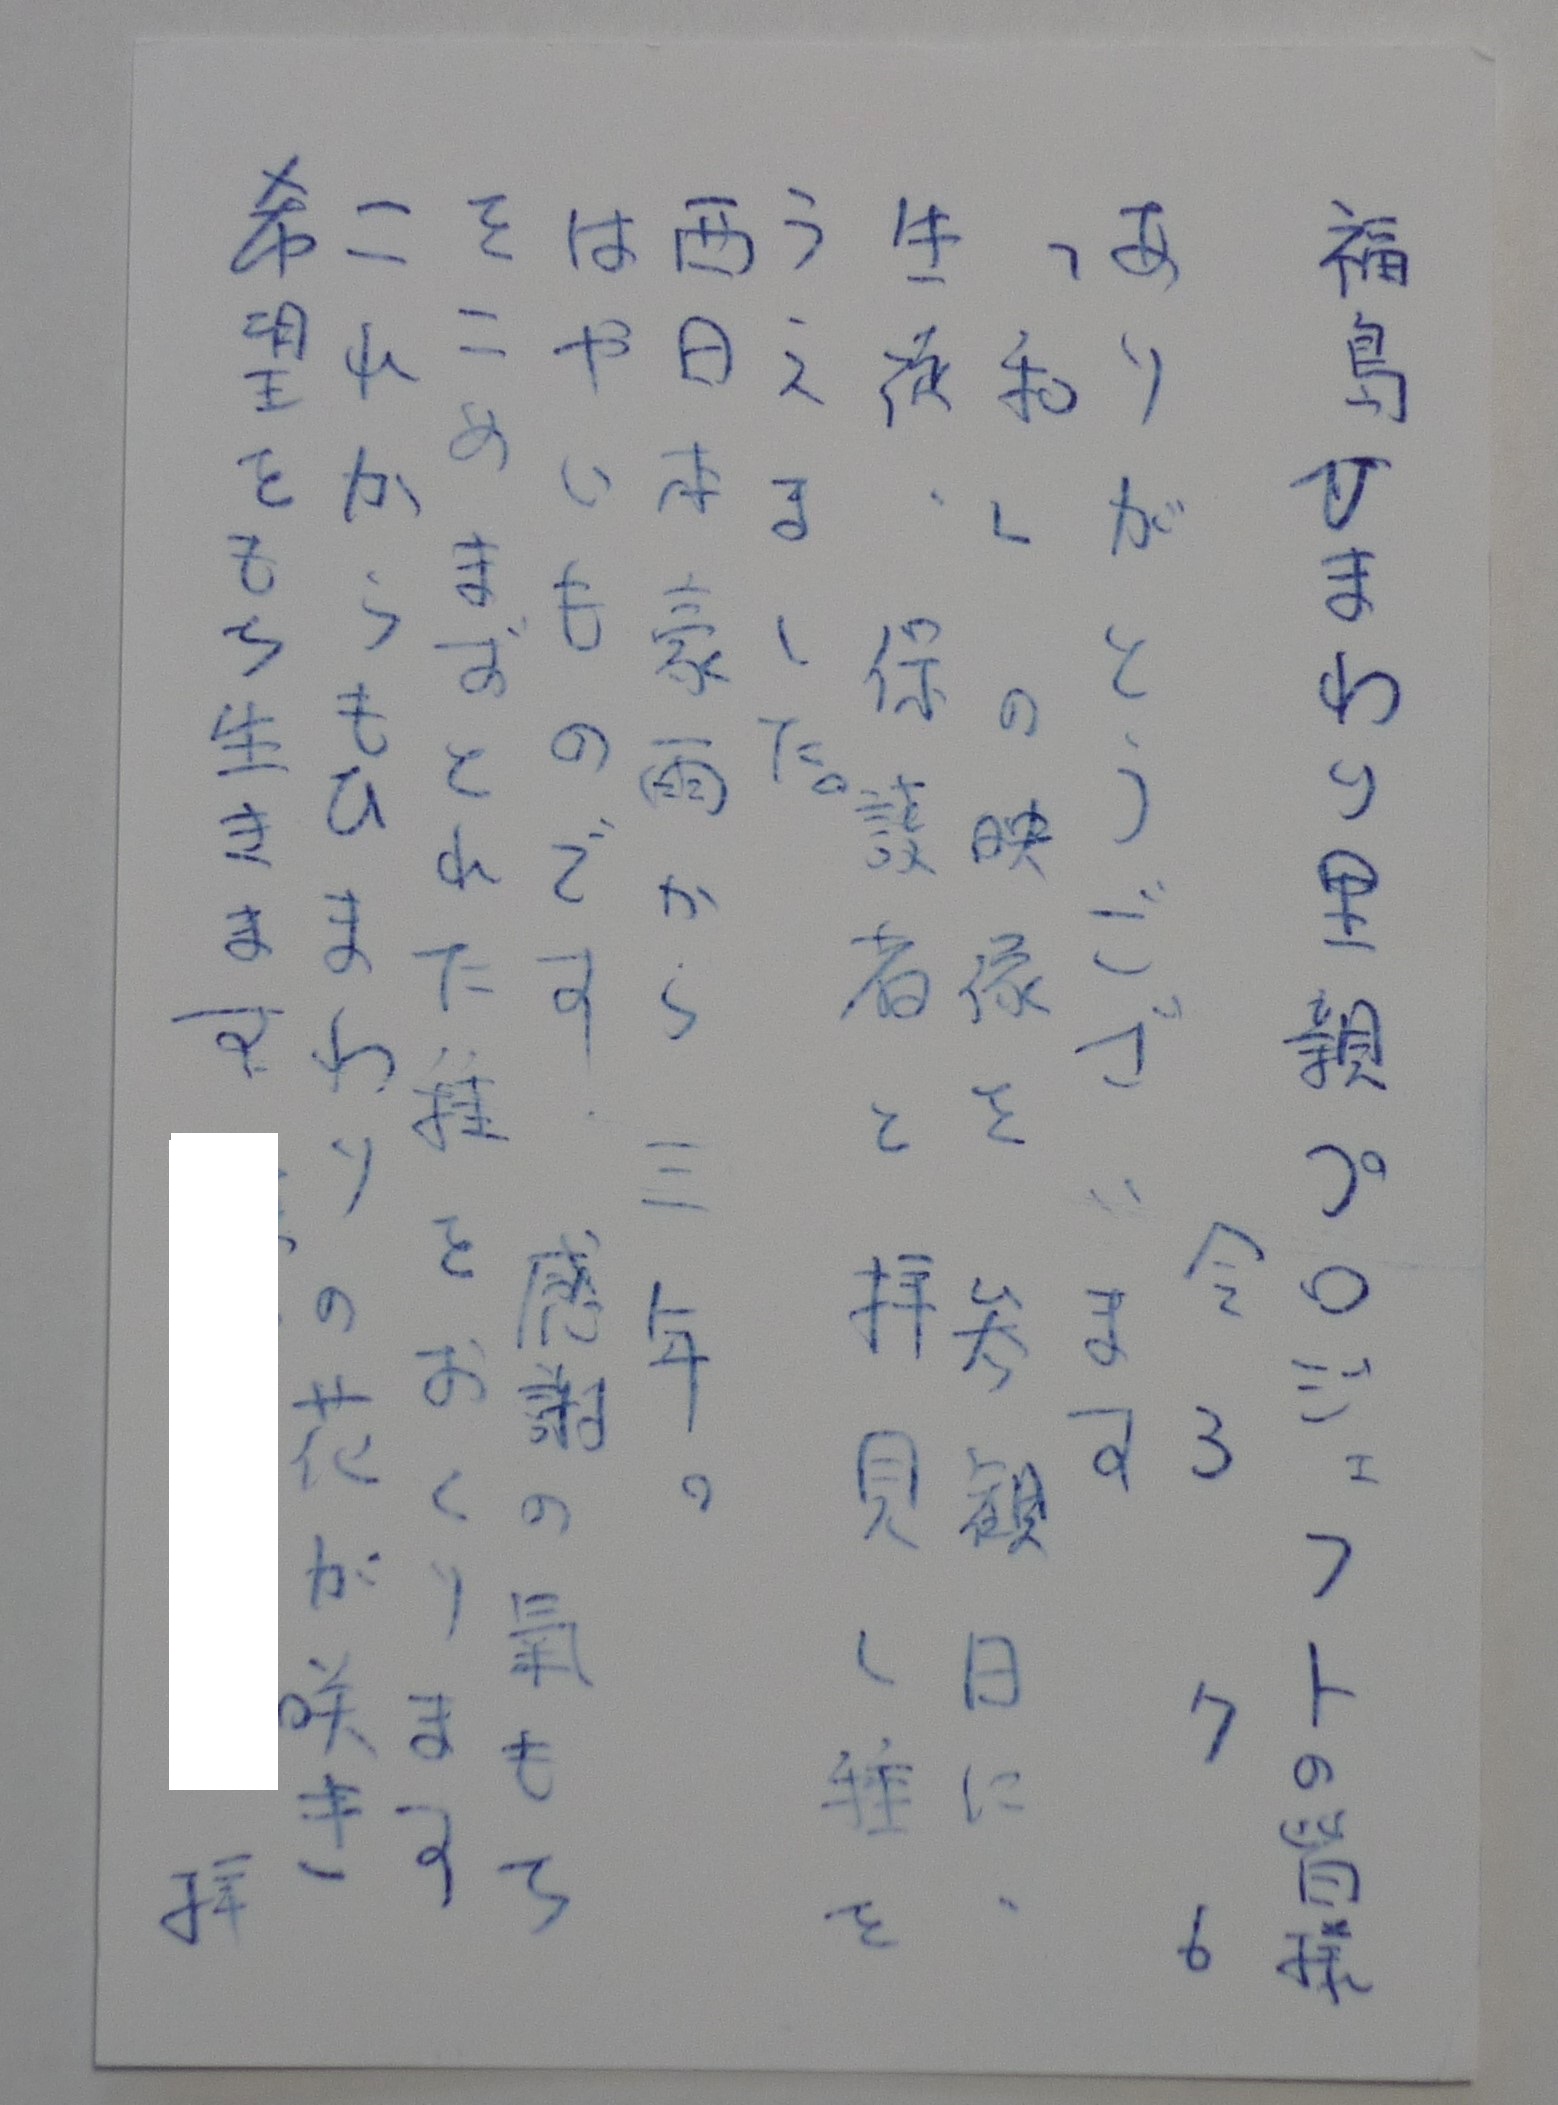 福島ひまわり里親プロジェクトの皆様
令3 7 6
ありがとうございます
「和」の映像を参観日に、
生徒、保護者と拝見し種を
うえました。
西日本豪雨から三年。
はやいものです。感謝の氣もち
をこめまずとれた種をおくります
これからもひまわりの花が咲き
希望をもち生きます
拝